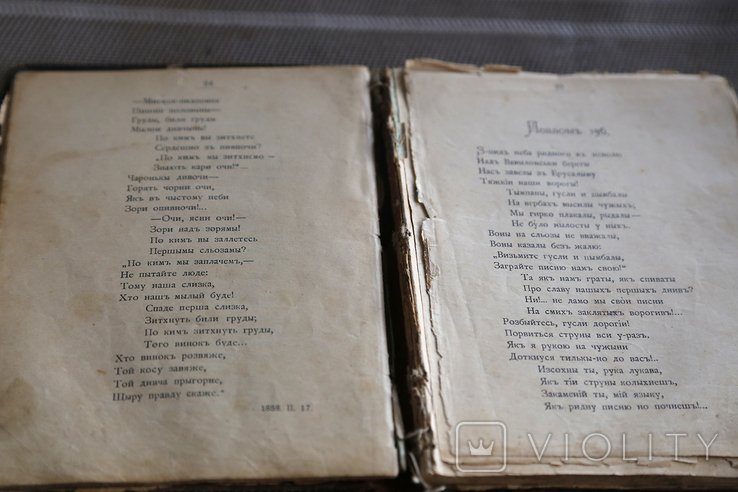 —Мисяце-паночику
Пишни половины—
Груды, били груды
Мылии дивчыни!
По кимъ вы зитхнете
Сердешно въ пивночи?
„По кимъ мы зитхнемо —
Знають кари очи!"—
Чароньки дивочи—
Горять чорни очи,
Якъ въ чыстому неби
Зори опивночи!...
—Очи, ясни очи!—
Зори надъ зорямы!
По кимъ вы заллетесь
Першымы сльозамы?
„По кимъ мы заплачемъ,—
Не пытайте люде:
Тому наша слизка,
Хто нашъ мылый буде!
Спаде перша слизка,
Зитхнуть били груды;
По кимъ зитхнуть груды,
Того винокъ буде...
Хто винокъ розвяже,
Той косу завяже,
Той дивча прыгорне,
Щыру правду скаже."
1858. II. 17.
Псаломъ 136.
неба ридного въ неволю
Надъ Вавилонськи береги
Насъ завелы въ Ерусалиму
Тяжкіи наши вороги!
Тымпаны, гусли и цымбалы
На вербахъ высилы чужыхъ;
Мы гирко плакалы, рыдалы—
Не було мылосты у ныхъ.
Воны на сльозы не вважалы,
Воны казалы безъ жалю:
„Визьмите гусли и цымбалы,
Заграйте писню намъ свою!"
Та якъ намъ граты, якъ спиваты
Про славу нашыхъ першыхъ днивъ?
Ни!... не ламо мы свои писни
На смихъ заклятыхъ воротивъ!...
Розбыйтесь, гусли дорогіи!
Порвиться струны вси у-разъ.
Якъ я рукою на чужыни
Доткнуся тилькы-но до васъ!..
Изсохны ты, рука лукава,
Якъ тіи струны колыхнешъ,
Закаменій ты, мій языку,
Якъ ридну писню но почнешъ!..
VIOLITY